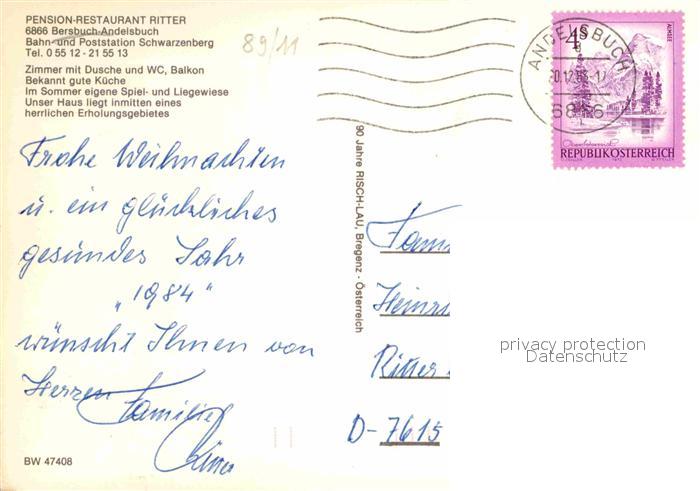 PENSION-RESTAURANT RITTER
6866 Bersbuch-Andelsbuch
Bahn- und Poststation Schwarzenberg
Tel. 0 55 12 - 21 55 13
Zimmer mit Dusche und WC, Balkon
Bekannt gute Küche
Im Sommer eigene Spiel- und Liegewiese
Unser Haus liegt inmitten eines
herrlichen Erholungsgebietes
89/11
ANDELSBUCH
6866
4S
ALMSEE
REPUBLIK ÖSTERREICH
Frohe Weihnachten
u. ein glückliches
gesundes Jahr
„1984"
wünscht Ihnen von
Herzen
Familie
Ritter
90 Jahre RISCH-LAU, Bregenz - Österreich
Fam
Heinr
Ritter
D-7615
privacy protection
Datenschutz
BW 47408